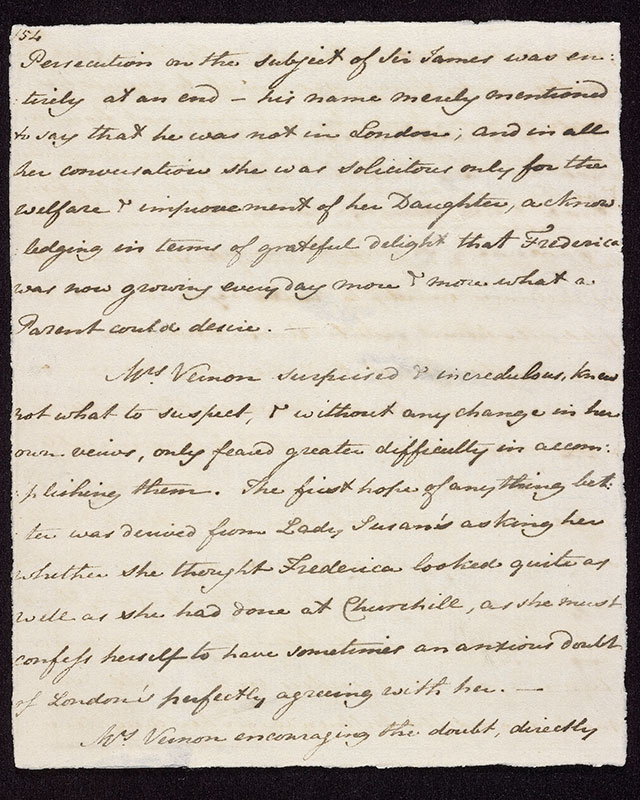 154
Persecution on the subject of Sir James was en:
:tirely at an end – his name merely mentioned
to say that he was not in London; and in all
her conversation she was solicitous only for the
welfare & improvement of her Daughter, acknow:
:ledging in terms of grateful delight that Frederica
was now growing every day more & more what a
Parent could desire. —
Mrs Vernon surprised & incredulous, knew
not what to suspect, & without any change in her
own veiws, only feared greater difficulty in accom:
:plishing them. The first hope of anything bet:
:ter was derived from Lady Susan's asking her
whether she thought Frederica looked quite as
well as she had done at Churchill, as she must
confess herself to have sometimes an anxious doubt
of London's perfectly agreeing with her. —
Mrs Vernon encouraging the doubt, directly